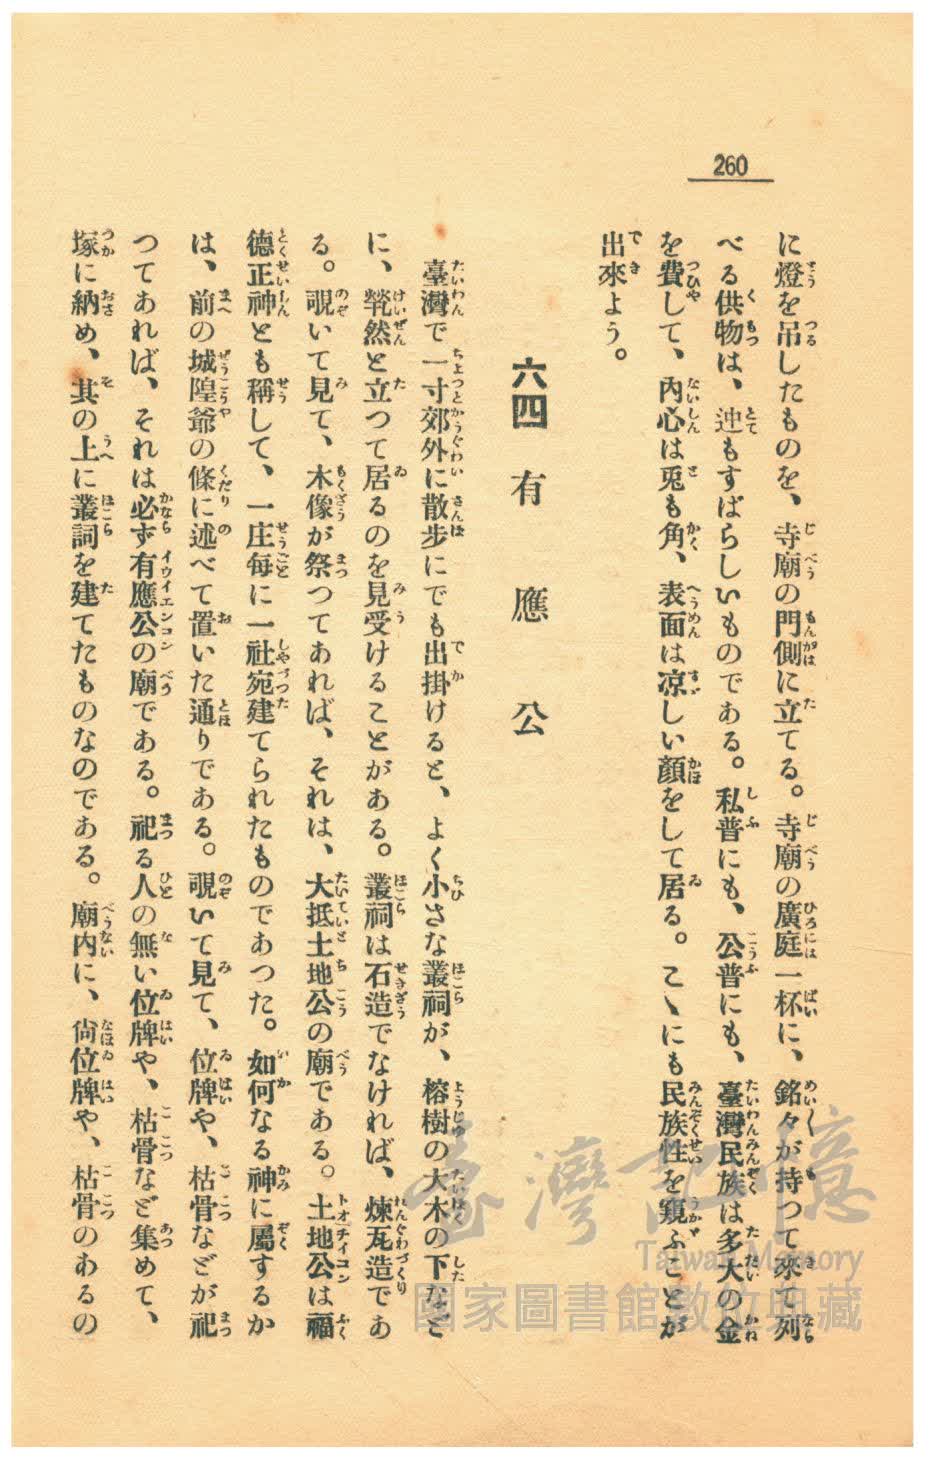 260
に燈を吊したものを、寺廟の門側に立てる。寺廟の廣庭一杯に、銘々が持つて來て列
べる供物は、迚もすばらしいものである。私普にも、公普にも、臺灣民族は多大の金
を費して、內心は兎も角、表面は凉しい顏をして居る。こゝにも民族性を窺ふことが
出來よう。
六四 有應公
臺灣で一寸郊外に散步にでも出掛けると、よく小さな叢祠が、榕樹の大木の下など
に、煢然と立つて居るのを見受けることがある。叢祠は石造でなければ、煉瓦造であ
る。覗いて見て、木像が祭つてあれば、それは、大抵土地公の廟である。土地公は福
德正神とも稱して、一庄每に一社宛建てられたものであつた。如何なる神に屬するか
は、前の城隍爺の條に述べて置いた通りである。覗いて見て、位牌や、枯骨などが祀
つてあれば、それは必ず有應公の廟である。祀る人の無い位牌や、枯骨など集めて、
塚に納め、其の上に叢祠を建てたものなのである。廟內に、尙位牌や、枯骨のあるの
臺灣記憶
Taiwan Memory
國家圖書館數位典藏